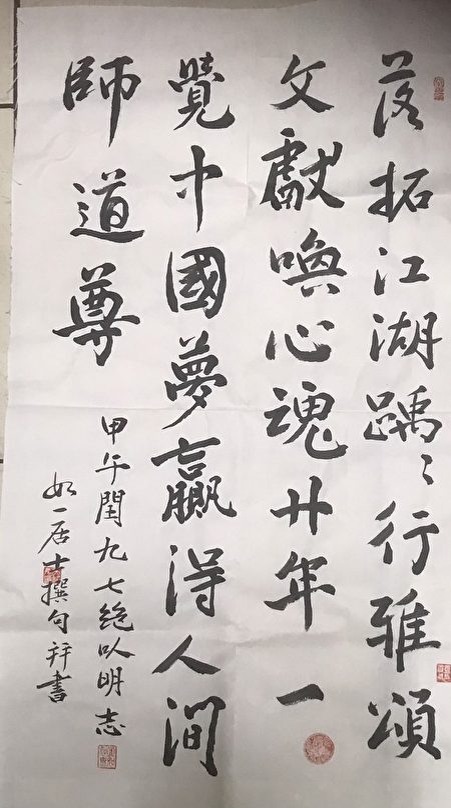 落拓江湖踽〻行雅頌
文獻喚心魂廿年一
覺中國夢贏得人间
師道尊
甲午閏九七絶以明志
如一居士撰句拜書